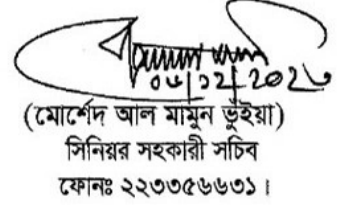 (মোর্শেদ আল মামুন ভুঁইয়া)
সিনিয়র সহকারী সচিব
ফোনঃ ২২৩৩৫৬৬৩১।